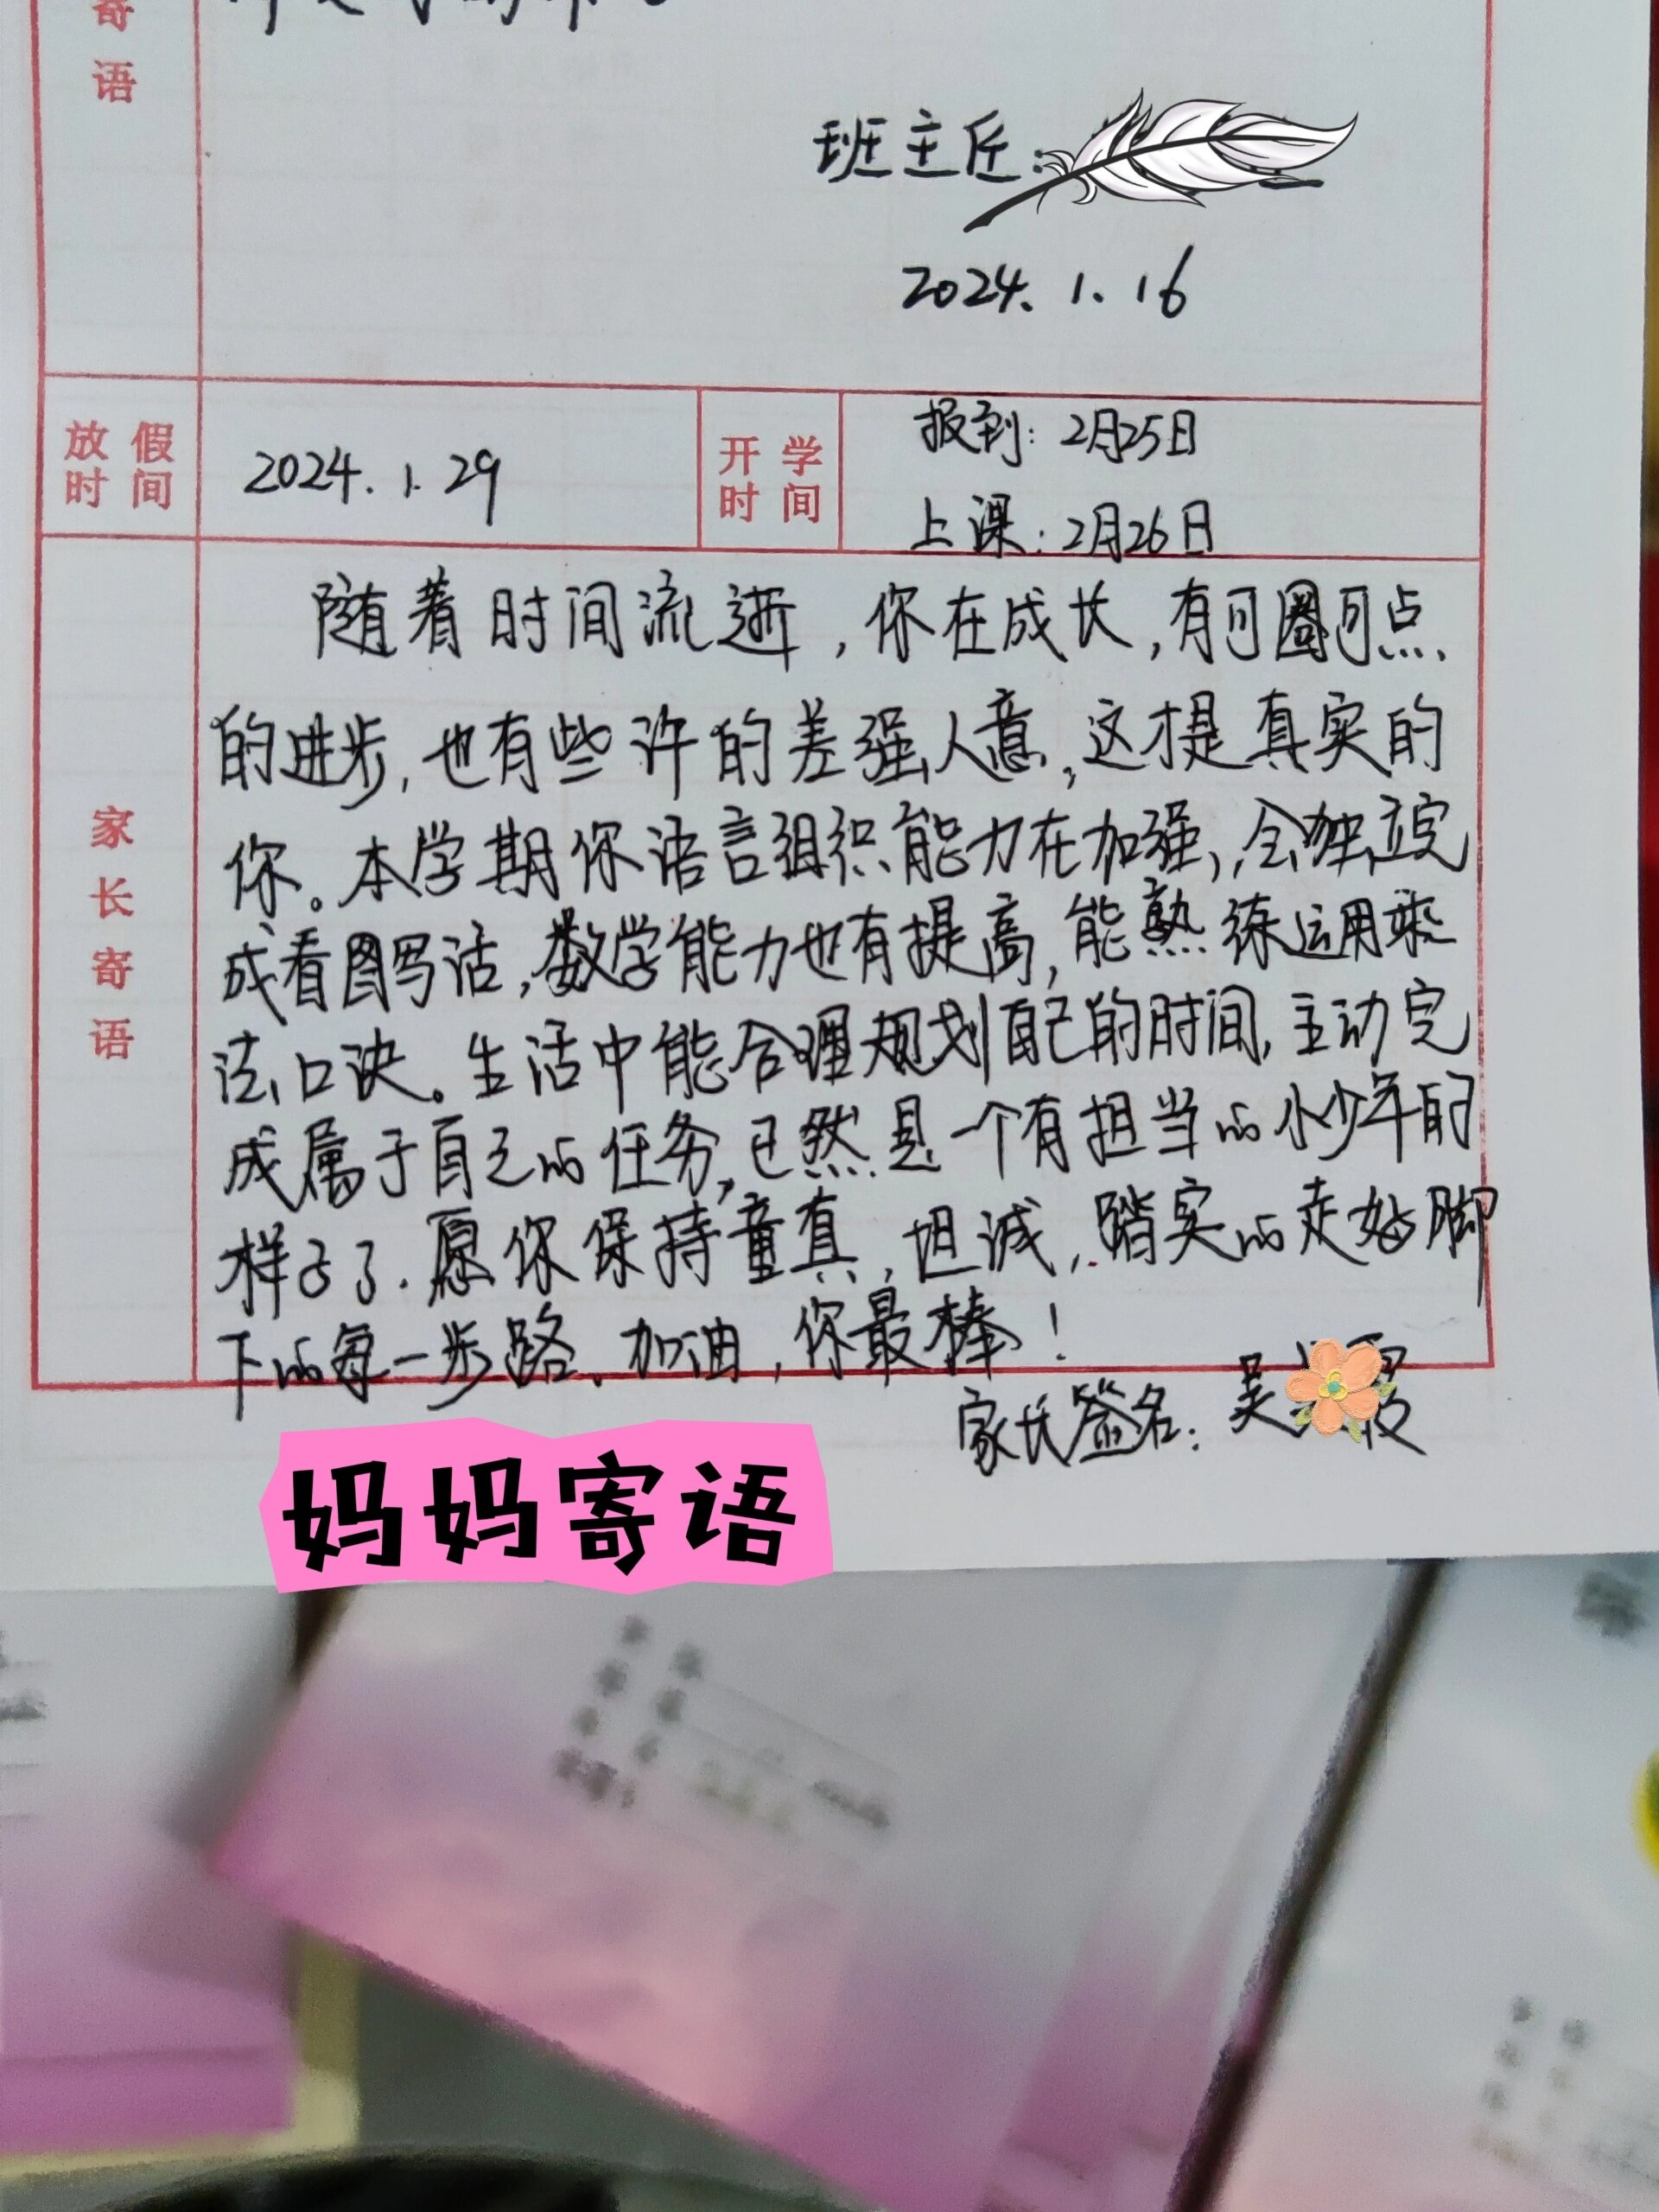 寄
语
班主任:
2024.1.16
放假
时间
2024.1.29
开学
时间
报到: 2月25日
上课: 2月26日
家长寄语
随着时间流逝,你在成长,有可圈可点
的进步,也有些许的差强人意,这才是真实的
你。本学期你语言组织能力在加强,会独立完
成看图写话,数学能力也有提高,能熟练运用乘
法口诀。生活中能合理规划自己的时间,主动完
成属于自己的任务,已然是一个有担当的小少年的
样子了.愿你保持童真,坦诚,踏实的走好脚
下的每一步路、加油,你最棒!
家长签名: 吴
妈妈寄语